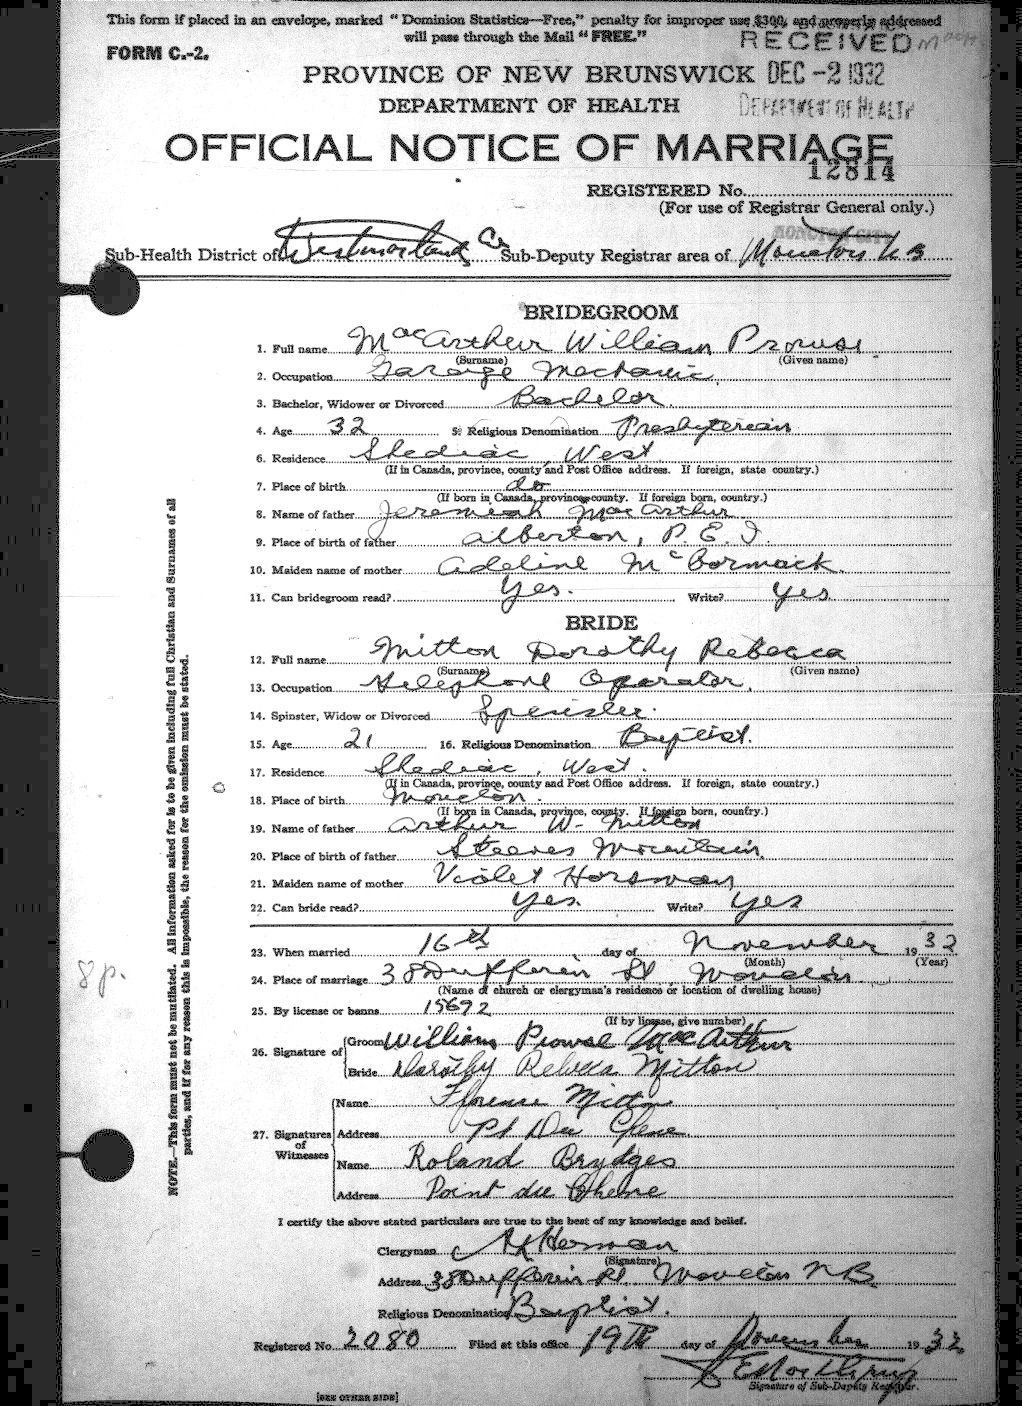 This form if placed in an envelope, marked "Dominion Statistics—Free," penalty for improper use $300, and properly addressed
will pass through the Mail "FREE."
FORM C.-2.
RECEIVED
PROVINCE OF NEW BRUNSWICK DEC -2 1932
DEPARTMENT OF HEALTH DEPARTMENT OF HEALTH
OFFICIAL NOTICE OF MARRIAGE
12814
REGISTERED No.
(For use of Registrar General only.)
MONCTON CITY
Sub-Health District of Westmorland Co Sub-Deputy Registrar area of Moncton N B
BRIDEGROOM
1. Full name MacArthur William Prowse
(Surname) (Given name)
2. Occupation Garage Mechanic
3. Bachelor, Widower or Divorced Bachelor
4. Age 32 5. Religious Denomination Presbyterian
6. Residence Shediac, West
(If in Canada, province, county and Post Office address. If foreign, state country.)
7. Place of birth do
(If born in Canada, province, county. If foreign born, country.)
8. Name of father Jeremiah MacArthur
9. Place of birth of father Alberton, P. E. I.
10. Maiden name of mother Adeline McCormack.
11. Can bridegroom read? Yes. Write? Yes
BRIDE
12. Full name Mitton Dorothy Rebecca
(Surname) (Given name)
13. Occupation Telephone Operator.
14. Spinster, Widow or Divorced Spinster.
15. Age 21 16. Religious Denomination Baptist.
17. Residence Shediac, West.
(If in Canada, province, county and Post Office address. If foreign, state country.)
18. Place of birth Moncton.
(If born in Canada, province, county. If foreign born, country.)
19. Name of father Arthur W. Mitton
20. Place of birth of father Steeves Mountain.
21. Maiden name of mother Violet Horsman
22. Can bride read? Yes. Write? Yes
23. When married 16th day of November 1932
(Month) (Year)
24. Place of marriage 38 Dufferin St, Moncton.
(Name of church or clergyman's residence or location of dwelling house)
25. By license or banns 15692
(If by license, give number)
26. Signature of Groom William Prowse MacArthur
Bride Dorothy Rebecca Mitton
27. Signatures of Witnesses
Name Florence Mitton
Address Pt Du Chene
Name Roland Brydges
Address Point du Chene
I certify the above stated particulars are true to the best of my knowledge and belief.
Clergyman Herman
(Signature)
Address 38 Dufferin St. Moncton N B
Religious Denomination Baptist.
Registered No. 2080 Filed at this office 19th day of November 1932
Signature of Sub-Deputy Registrar.
[SEE OTHER SIDE]
NOTE.—This form must not be mutilated. All information asked for is to be given including full Christian and Surnames of all
parties, and if for any reason this is impossible, the reason for the omission must be stated.
8p.